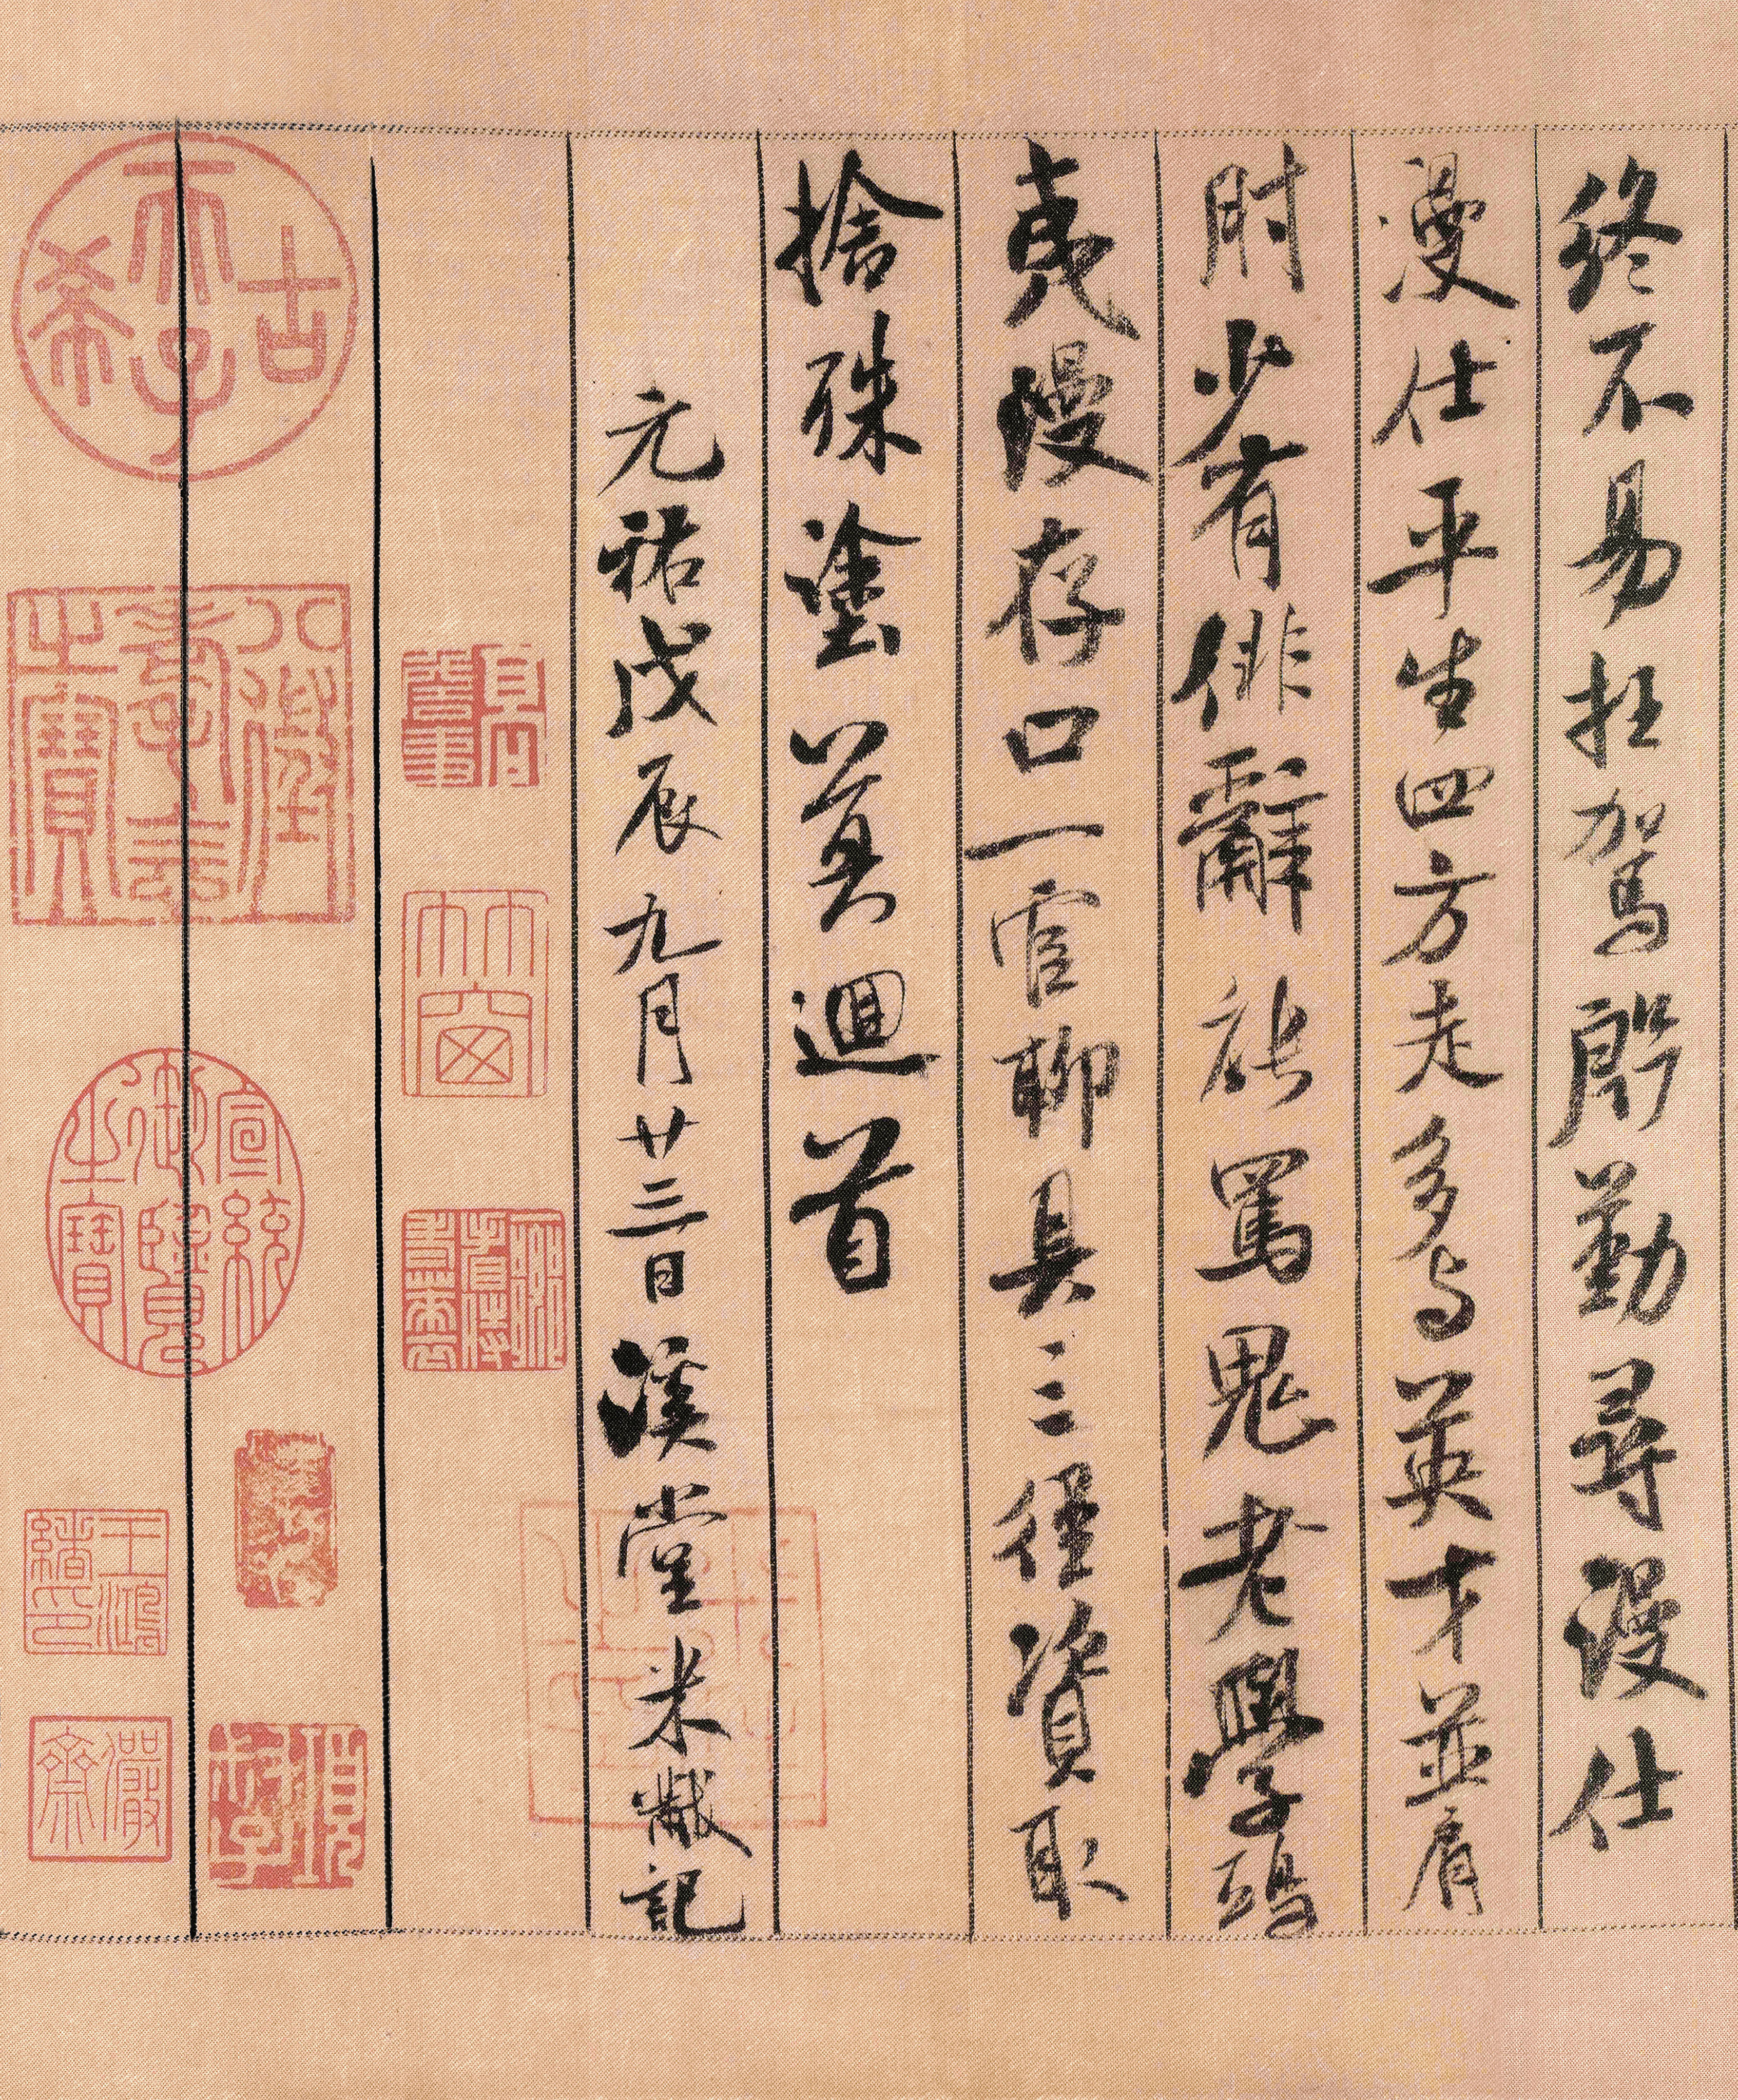 終不易枉駕殷勤尋漫仕
漫仕平生四方走多与英才並肩
肘少有俳辭能罵鬼老學鴟
夷漫存口一官聊具三徑資取
捨殊塗莫迴首
元祐戊辰九月廿三日溪堂米黻記
高詹事
竹窗
古希天子
八徵耄念之寶
宣統御覽之寶
項叔子
王鴻緒印
儼齋